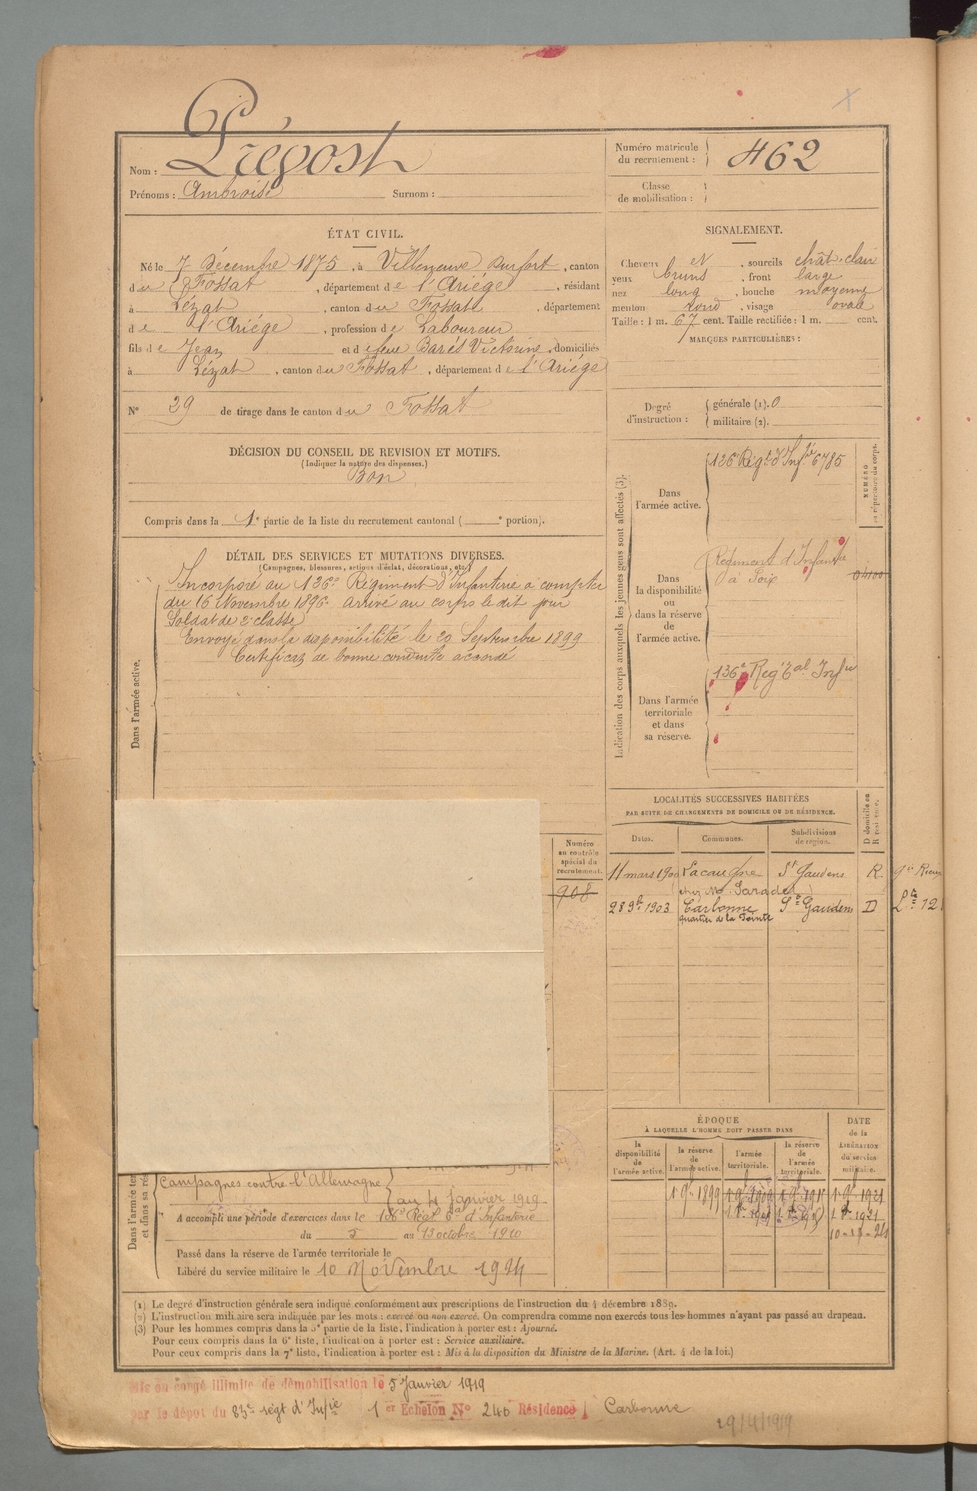 Nom : Prégost
Prénoms : Ambroise Surnom :
Numéro matricule du recrutement : 462
Classe de mobilisation :
ÉTAT CIVIL.
Né le 7 Décembre 1875, à Villeneuve Durfort, canton
du Fossat, département de l'Ariége, résidant
à Lézat, canton du Fossat, département
de l'Ariége, profession de Laboureur
fils de Jean et de feue Barés Victorine, domiciliés
à Lézat, canton du Fossat, département de l'Ariége
N° 29 de tirage dans le canton du Fossat
DÉCISION DU CONSEIL DE REVISION ET MOTIFS.
(Indiquer la nature des dispenses.)
Bon
Compris dans la 1e partie de la liste du recrutement cantonal ( e portion).
DÉTAIL DES SERVICES ET MUTATIONS DIVERSES.
(Campagnes, blessures, actions d'éclat, décorations, etc.)
Dans l'armée active.
Incorporé au 126e Régiment d'Infanterie a compter
du 16 Novembre 1896. Arrivé au corps le dit jour
Soldat de 2e classe
Envoyé dans la disponibilité le 20 Septembre 1899
Certificat de bonne conduite accordé
Numéro au contrôle spécial du recrutement.
908
Campagnes contre l'Allemagne
au 4 Janvier 1919
A accompli une période d'exercices dans le 136e Régt tal d'Infanterie
du 5 au 13 octobre 1910
Passé dans la réserve de l'armée territoriale le
Libéré du service militaire le 10 Novembre 1924
SIGNALEMENT.
Cheveux et, sourcils chât-clair
yeux bruns, front large
nez long, bouche moyenne
menton rond, visage ovale
Taille : 1 m. 67 cent. Taille rectifiée : 1 m. cent.
MARQUES PARTICULIÈRES :
Degré d'instruction : générale (1). 0
militaire (2).
Indication des corps auxquels les jeunes gens sont affectés (3).
NUMÉRO au répertoire du corps.
Dans l'armée active.
126e Régt d'Infie 6785
Dans la disponibilité ou dans la réserve de l'armée active.
Régiment d'Infanterie
à Foix
Dans l'armée territoriale et dans sa réserve.
136e Régt tal Infie
LOCALITÉS SUCCESSIVES HABITÉES
PAR SUITE DE CHANGEMENTS DE DOMICILE OU DE RÉSIDENCE.
Dates. Communes. Subdivisions de région. D domicile ou R résidence.
11 mars 1900 Lacaugne St Gaudens R
28 9bre 1903 Carbonne St Gaudens D
quartier de la Pointe
ÉPOQUE
À LAQUELLE L'HOMME DOIT PASSER DANS
la disponibilité de l'armée active.
la réserve de l'armée active.
l'armée territoriale.
la réserve de l'armée territoriale.
DATE de la LIBÉRATION du service militaire.
(1) Le degré d'instruction générale sera indiqué conformément aux prescriptions de l'instruction du 4 décembre 1889.
(2) L'instruction militaire sera indiquée par les mots : exercé ou non exercé. On comprendra comme non exercés tous les hommes n'ayant pas passé au drapeau.
(3) Pour les hommes compris dans la 5e partie de la liste, l'indication à porter est : Ajourné.
Pour ceux compris dans la 6e liste, l'indication à porter est : Service auxiliaire.
Pour ceux compris dans la 7e liste, l'indication à porter est : Mis à la disposition du Ministre de la Marine. (Art. 4 de la loi.)
Mis en congé illimité de démobilisation le 5 Janvier 1919
par le dépot du 83e régt d'Infie 1er Echelon N° 240 Résidence Carbonne